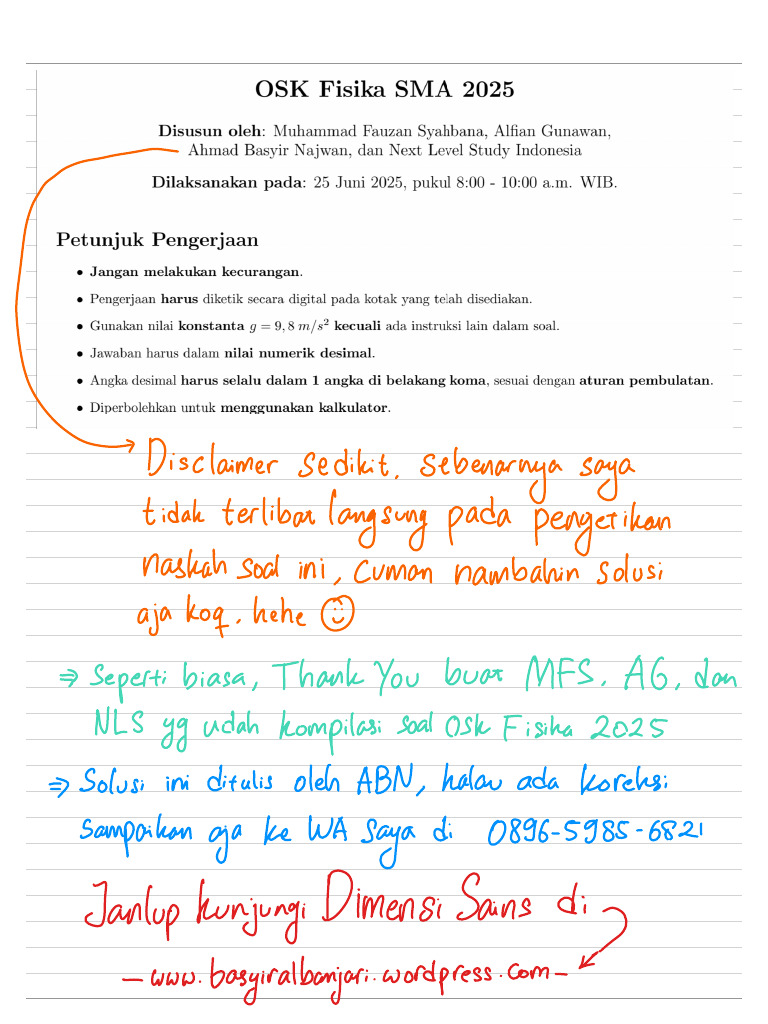 OSK Fisika SMA 2025
Disusun oleh: Muhammad Fauzan Syahbana, Alfian Gunawan,
Ahmad Basyir Najwan, dan Next Level Study Indonesia
Dilaksanakan pada: 25 Juni 2025, pukul 8:00 - 10:00 a.m. WIB.
Petunjuk Pengerjaan
• Jangan melakukan kecurangan.
• Pengerjaan harus diketik secara digital pada kotak yang telah disediakan.
• Gunakan nilai konstanta g = 9,8 m/s² kecuali ada instruksi lain dalam soal.
• Jawaban harus dalam nilai numerik desimal.
• Angka desimal harus selalu dalam 1 angka di belakang koma, sesuai dengan aturan pembulatan.
• Diperbolehkan untuk menggunakan kalkulator.
Disclaimer sedikit, sebenarnya saya
tidak terlibat langsung pada pengetikan
naskah soal ini, cuman nambahin solusi
aja koq. hehe ☺
⇒ Seperti biasa, Thank You buat MFS, AG, dan
NLS yg udah kompilasi soal OSK Fisika 2025
⇒ Solusi ini ditulis oleh ABN, kalau ada koreksi
sampaikan aja ke WA saya di 0896-5985-6821
Janlup kunjungi Dimensi Sains di
- www.basyiralbanjari.wordpress.com -